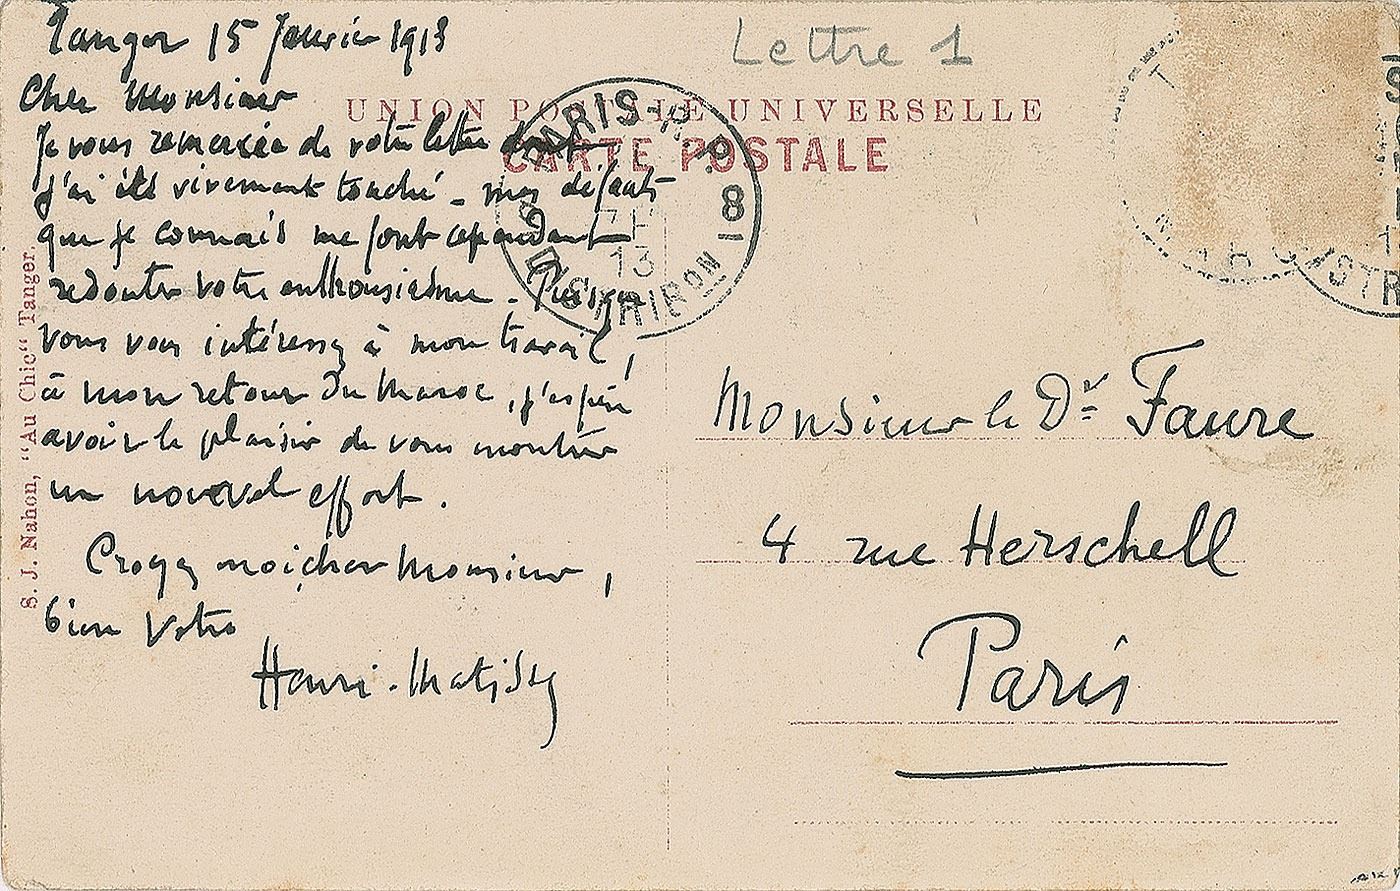 Lettre 1
UNION POSTALE UNIVERSELLE
CARTE POSTALE
Tanger 15 Janvier 1913
Cher Monsieur
Je vous remercie de votre lettre dont
j'ai été vivement touché - mes défauts
que je connais me font cependant
redouter votre enthousiasme. Puisque
vous vous intéressez à mon travail,
à mon retour du Maroc, j'espère
avoir le plaisir de vous montrer
un nouvel effort.
Croyez moi, cher Monsieur,
bien votre
Henri-Matisse
Monsieur le Dr Faure
4 rue Herschell
Paris
S. J. Nahon, "Au Chic" Tanger
PARIS
8
13
DISTRIBUTION